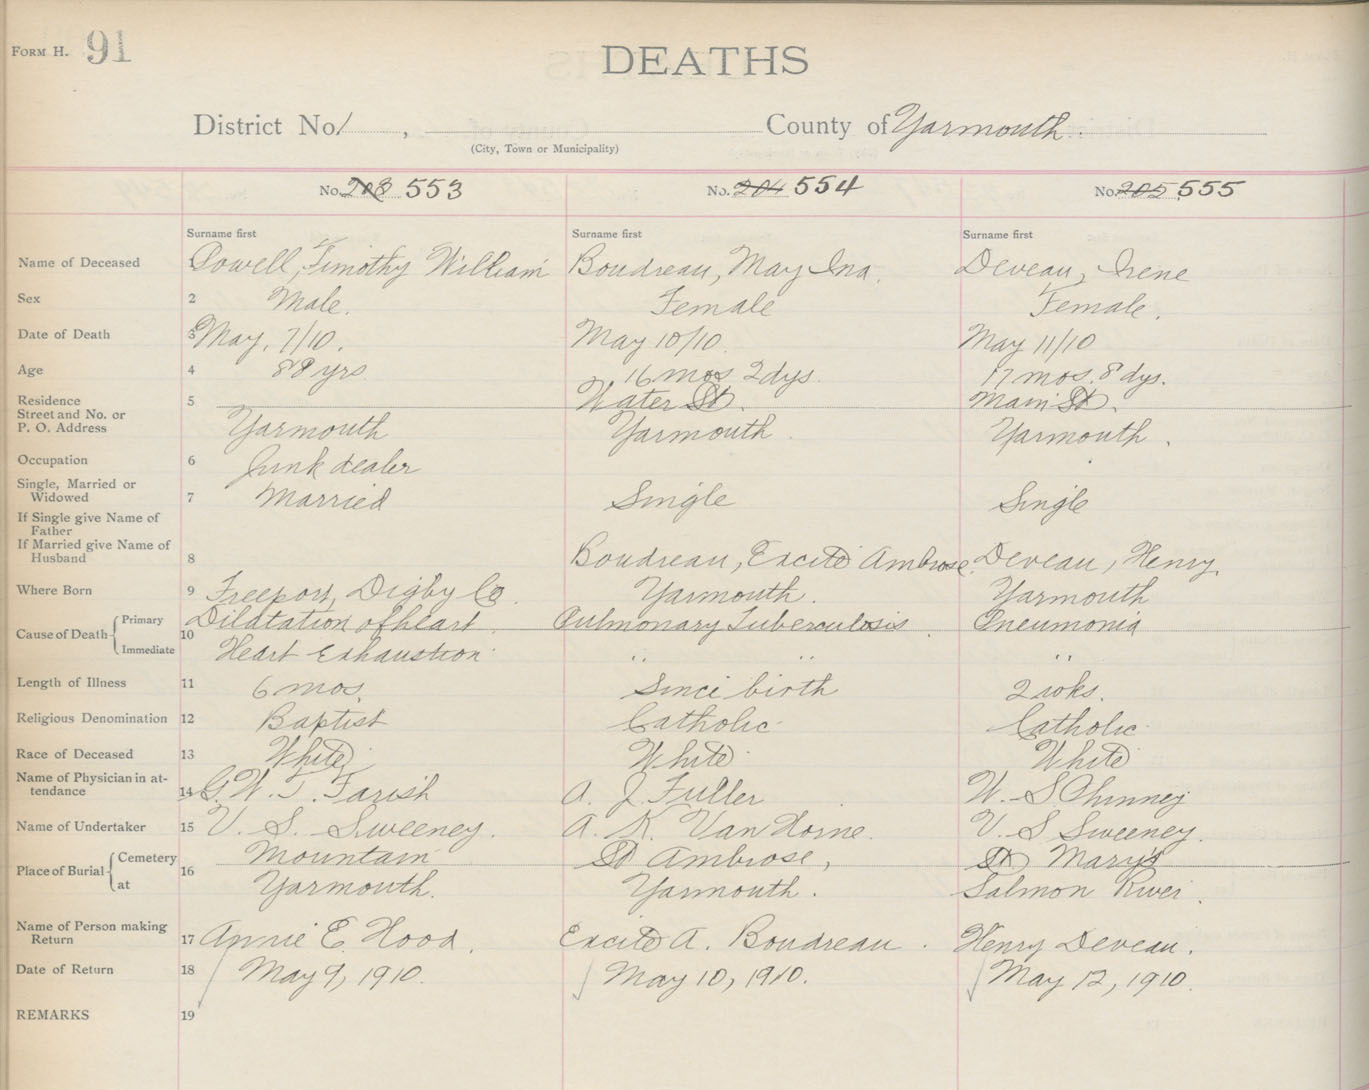 FORM H. 91
DEATHS
District No 1 , County of Yarmouth.
(City, Town or Municipality)
No. 203 553 No. 204 554 No. 205 555
Surname first Surname first Surname first
Name of Deceased 1 Powell, Timothy William Boudreau, May Ina. Deveau, Irene
Sex 2 Male. Female Female.
Date of Death 3 May, 7/10. May 10/10 May 11/10
Age 4 yrs 16 mos 2 dys. 17 mos. 8 dys.
Residence 5 Water St. Main St.
Street and No. or
P. O. Address Yarmouth Yarmouth. Yarmouth.
Occupation 6 Junk dealer
Single, Married or
Widowed 7 Married Single Single
If Single give Name of
Father
If Married give Name of
Husband 8 Boudreau, Excite Ambrose. Deveau, Henry.
Where Born 9 Freeport, Digby Co. Yarmouth. Yarmouth
Cause of Death Primary 10 Dilatation of heart. Pulmonary Tuberculosis. Pneumonia
Immediate Heart Exhaustion " " "
Length of Illness 11 6 mos. Since birth 2 wks.
Religious Denomination 12 Baptist Catholic Catholic
Race of Deceased 13 White White White
Name of Physician in at-
tendance 14 G. W. T. Farish A. J. Fuller W. S. Phinney
Name of Undertaker 15 V. S. Sweeney. A. K. Van Horne. V. S Sweeney.
Place of Burial Cemetery 16 Mountain St Ambrose, St Mary's
at Yarmouth. Yarmouth. Salmon River.
Name of Person making
Return 17 Annie E. Hood. Excite A. Boudreau. Henry Deveau.
Date of Return 18 May 9, 1910. May 10, 1910. May 12, 1910.
REMARKS 19